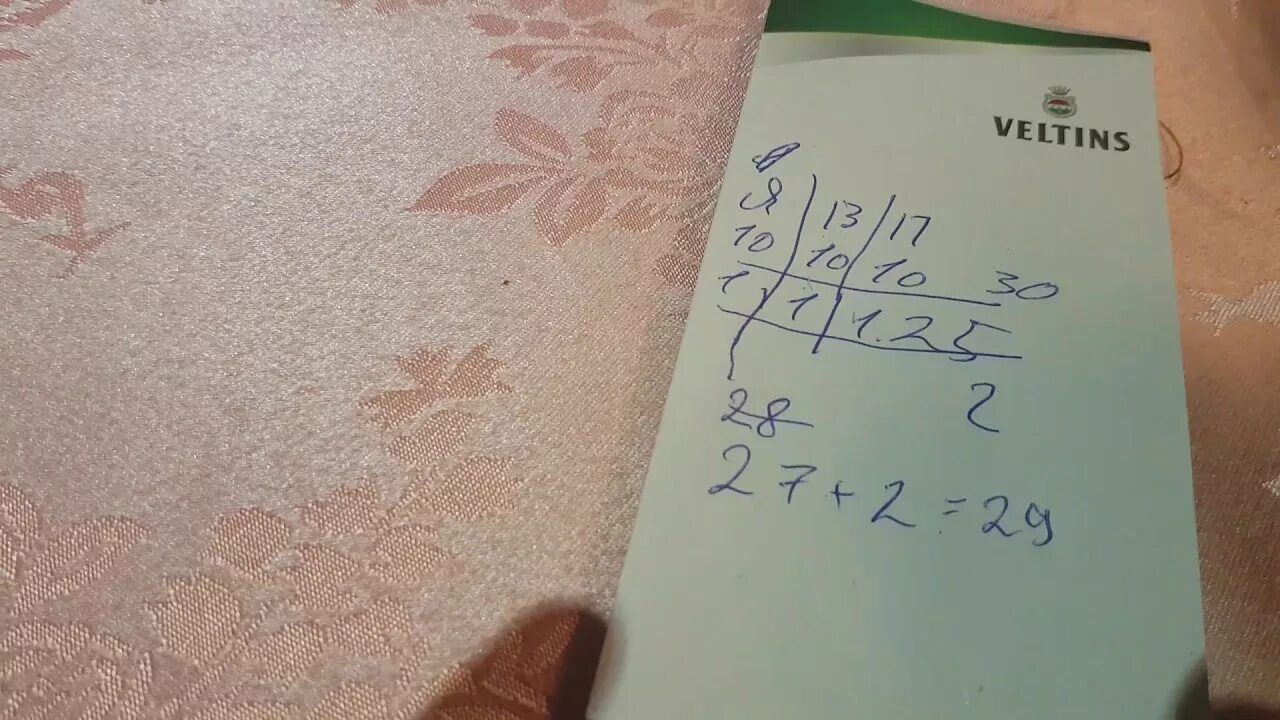 VELTINS
Я 13 17
10 10 10 30
1 1 1.25
2
28
27+2=29